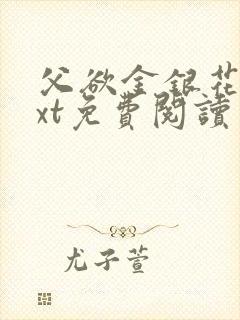 父欲金銀花
xt免費閱讀
尤子萱